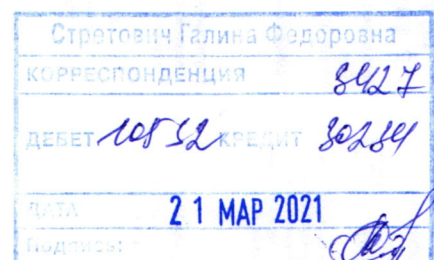 Стретович Галина Федоровна
КОРРЕСПОНДЕНЦИЯ 3427
ДЕБЕТ 10532 КРЕДИТ 30234
ДАТА 21 МАР 2021
Подпись: